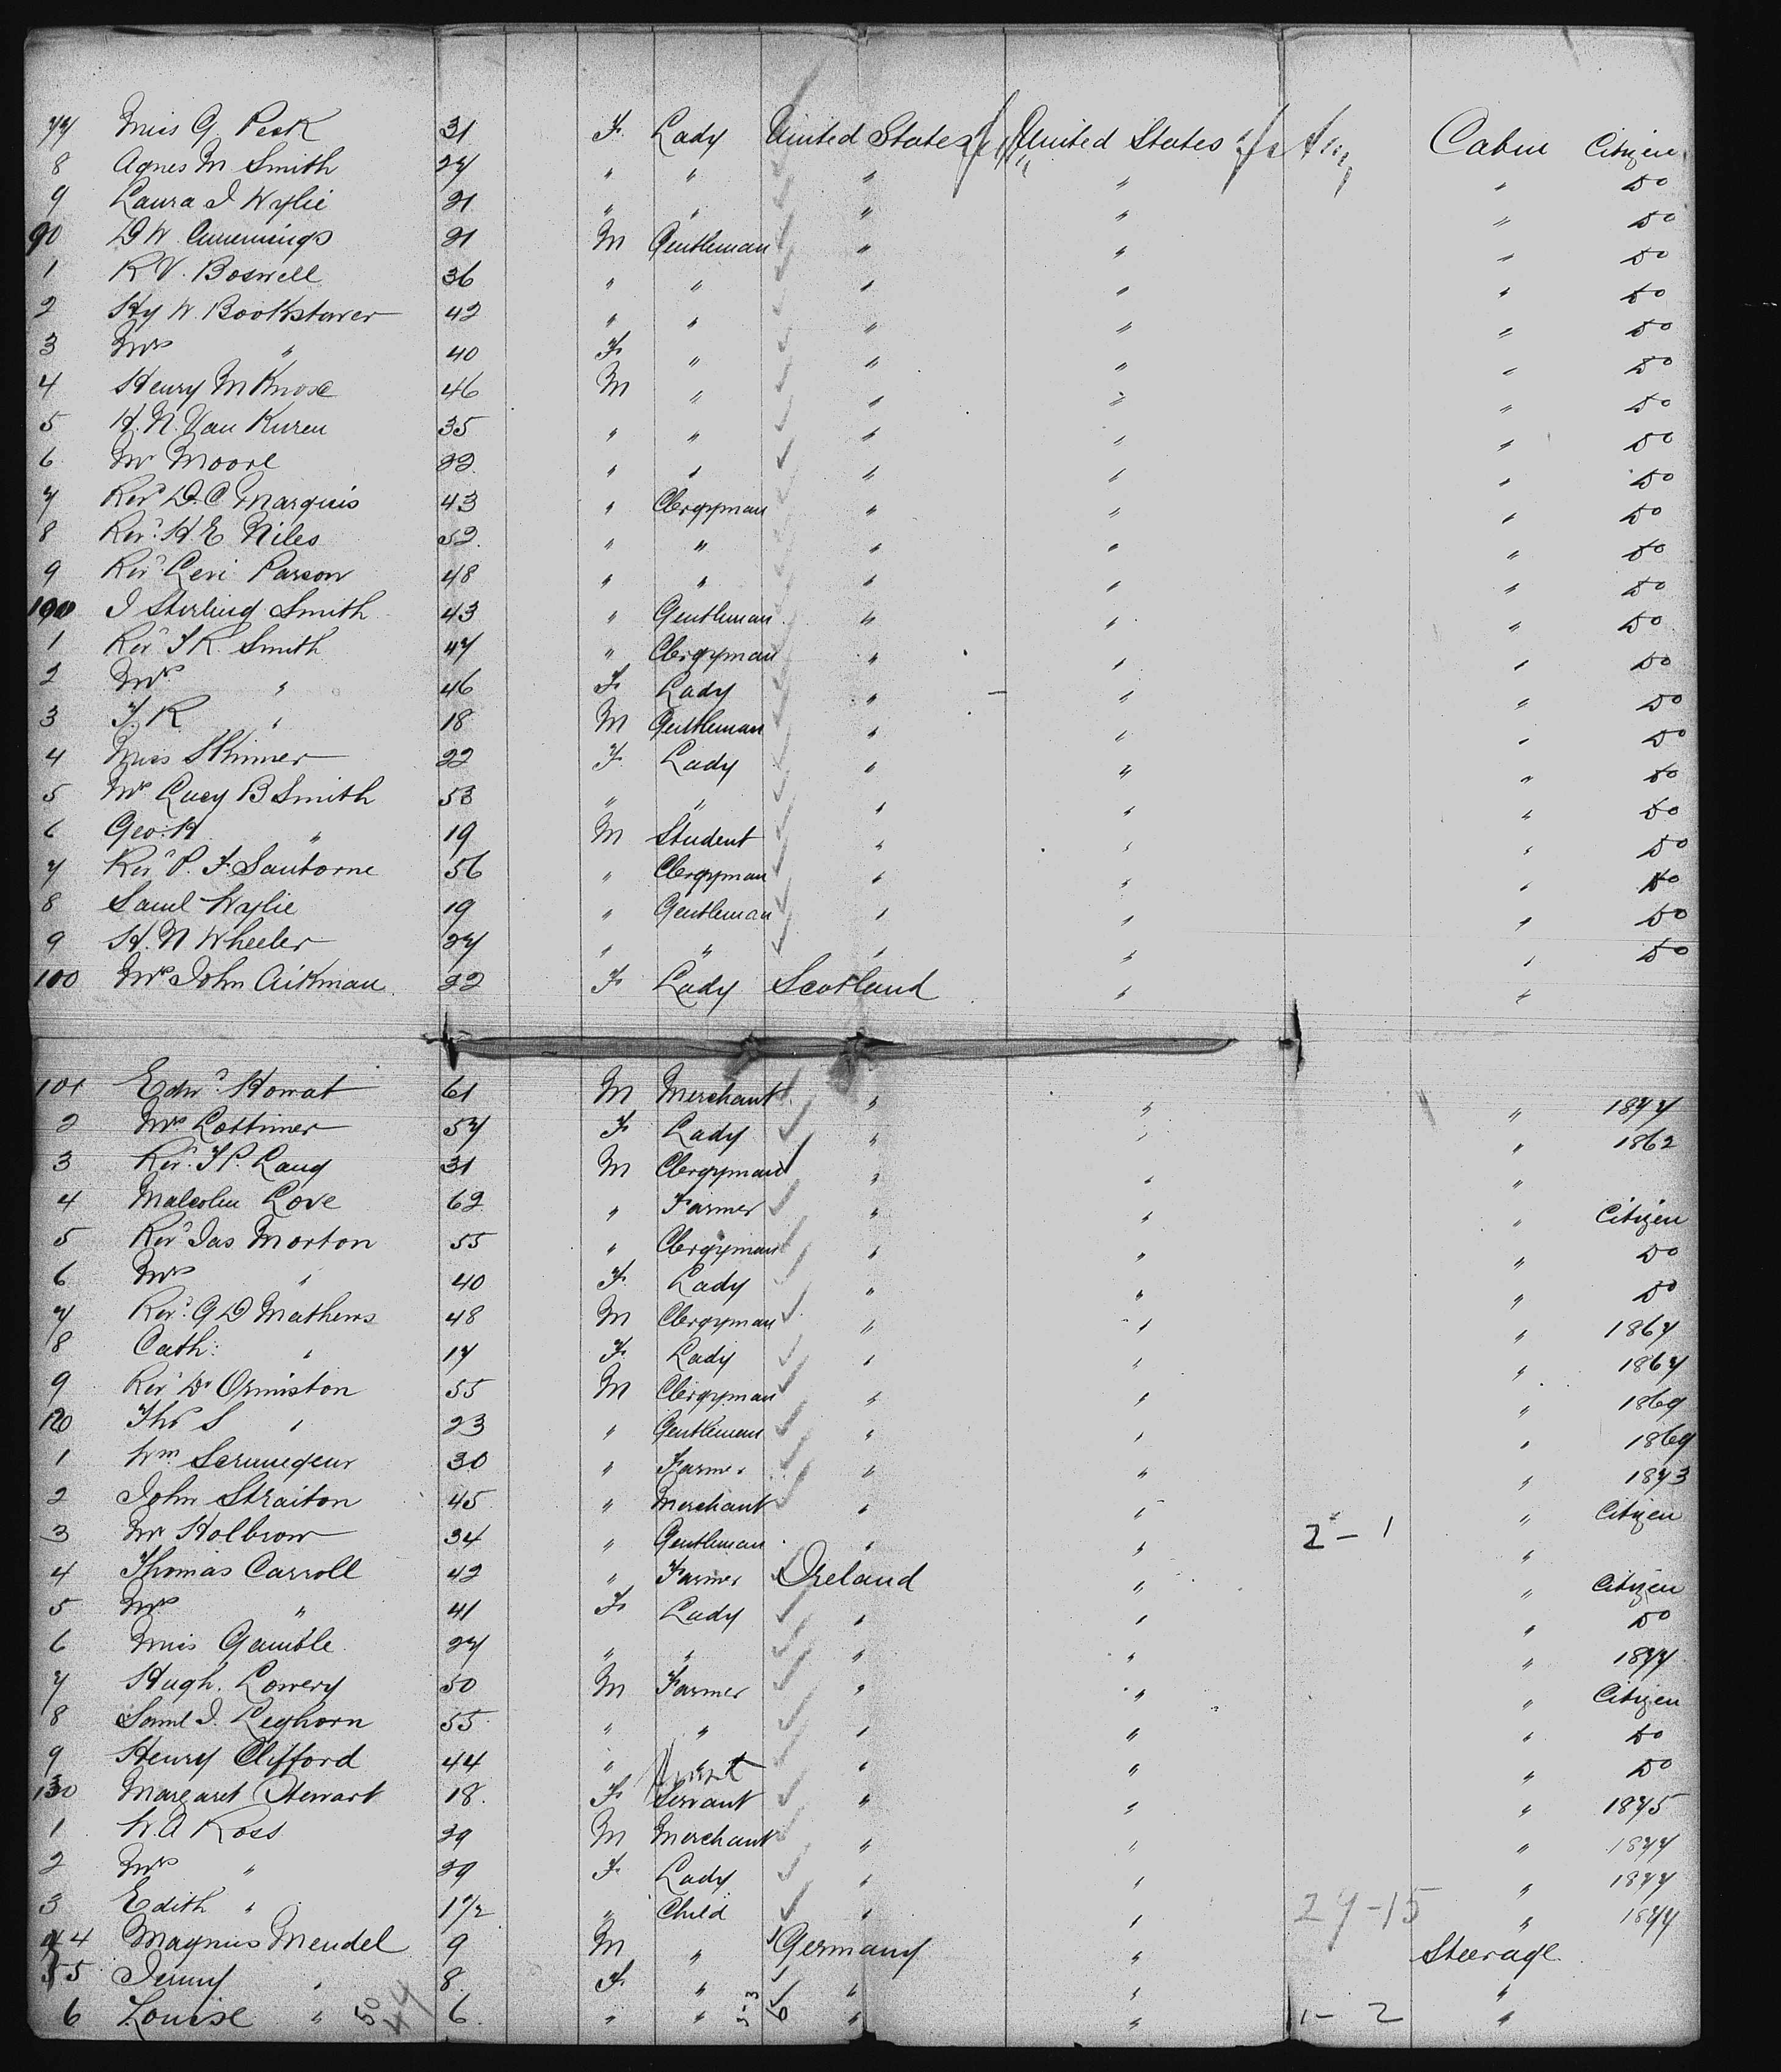 77 Miss G. Peek 31 F. Lady United States United States Cabin Citizen
8 Agnes M Smith 27 " " " " " Do
9 Laura J Wylie 21 " " " " " Do
90 D W. Cummings 21 M Gentleman " " " Do
1 R V. Boswell 36 " " " " " Do
2 Hy W. Bookstaver 42 " " " " " Do
3 Mrs " 40 F " " " " Do
4 Henry M Knox 46 M " " " " Do
5 H. N. Van Kuren 35 " " " " " Do
6 Mr Moore 22 " " " " " Do
7 Revd D. C. Marquis 43 " Clergyman " " " Do
8 Revd H. E Niles 52 " " " " " Do
9 Revd Levi Parson 48 " " " " " Do
100 J Sterling Smith 43 " Gentleman " " " Do
1 Revd T R. Smith 47 " Clergyman " " " Do
2 Mrs " 46 F Lady " " " Do
3 T. R " 18 M Gentleman " " " Do
4 Miss Skinner 22 F. Lady " " " Do
5 Mrs Lucy B Smith 53 " " " " " Do
6 Geo. H " 19 M Student " " " Do
7 Revd P. F. Sanborne 56 " Clergyman " " " Do
8 Saml Wylie 19 " Gentleman " " " Do
9 H. N Wheeler 27 " " " " " Do
100 Mrs John Aikman 22 F Lady Scotland " "
101 Edwd Howat 61 M Merchant " " " 1877
2 Mrs Lattimer 57 F Lady " " " 1862
3 Revd T P. Lang 31 M Clergyman " " "
4 Malcolm Love 62 " Farmer " " " Citizen
5 Revd Jas Morton 55 " Clergyman " " " Do
6 Mrs " 40 F. Lady " " " Do
7 Revd G D Mathews 48 M Clergyman " " " 1867
8 Cath: " 17 F Lady " " " 1867
9 Revd Dr Ormiston 55 M Clergyman " " " 1869
120 Thos S " 23 " Gentleman " " " 1869
1 Wm Scrumgeur 30 " Farmer " " " 1873
2 John Straiton 45 " Merchant " " " Citizen
3 Mr Holbrow 34 " Gentleman " " 2 - 1 "
4 Thomas Carroll 42 " Farmer Ireland " " Citizen
5 Mrs " 41 F Lady " " " Do
6 Miss Gamble 27 " " " " " 1877
7 Hugh. Lowery 50 M Farmer " " " Citizen
8 Saml J. Leghorn 55 " " " " " Do
9 Henry Clifford 44 " " " " Do
130 Margaret Stewart 18. F Servant " " " 1875
1 W. A Ross 39 M Merchant " " " 1877
2 Mrs " 39 F. Lady " " " 1877
3 Edith " 1 1/2 " Child " " 29-15 " 1877
44 Magnus Mendel 9 M " Germany " Steerage
55 Jenny " 8 F " " " "
6 Louise " 50 47 6 " " 5-3 6 " " 1- 2 "